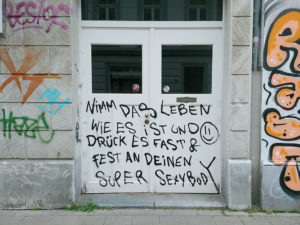 NIMM DAS LEBEN
WIE ES IST UND
DRÜCK ES FAST &
FEST AN DEINEN
SUPER SEXYBODY